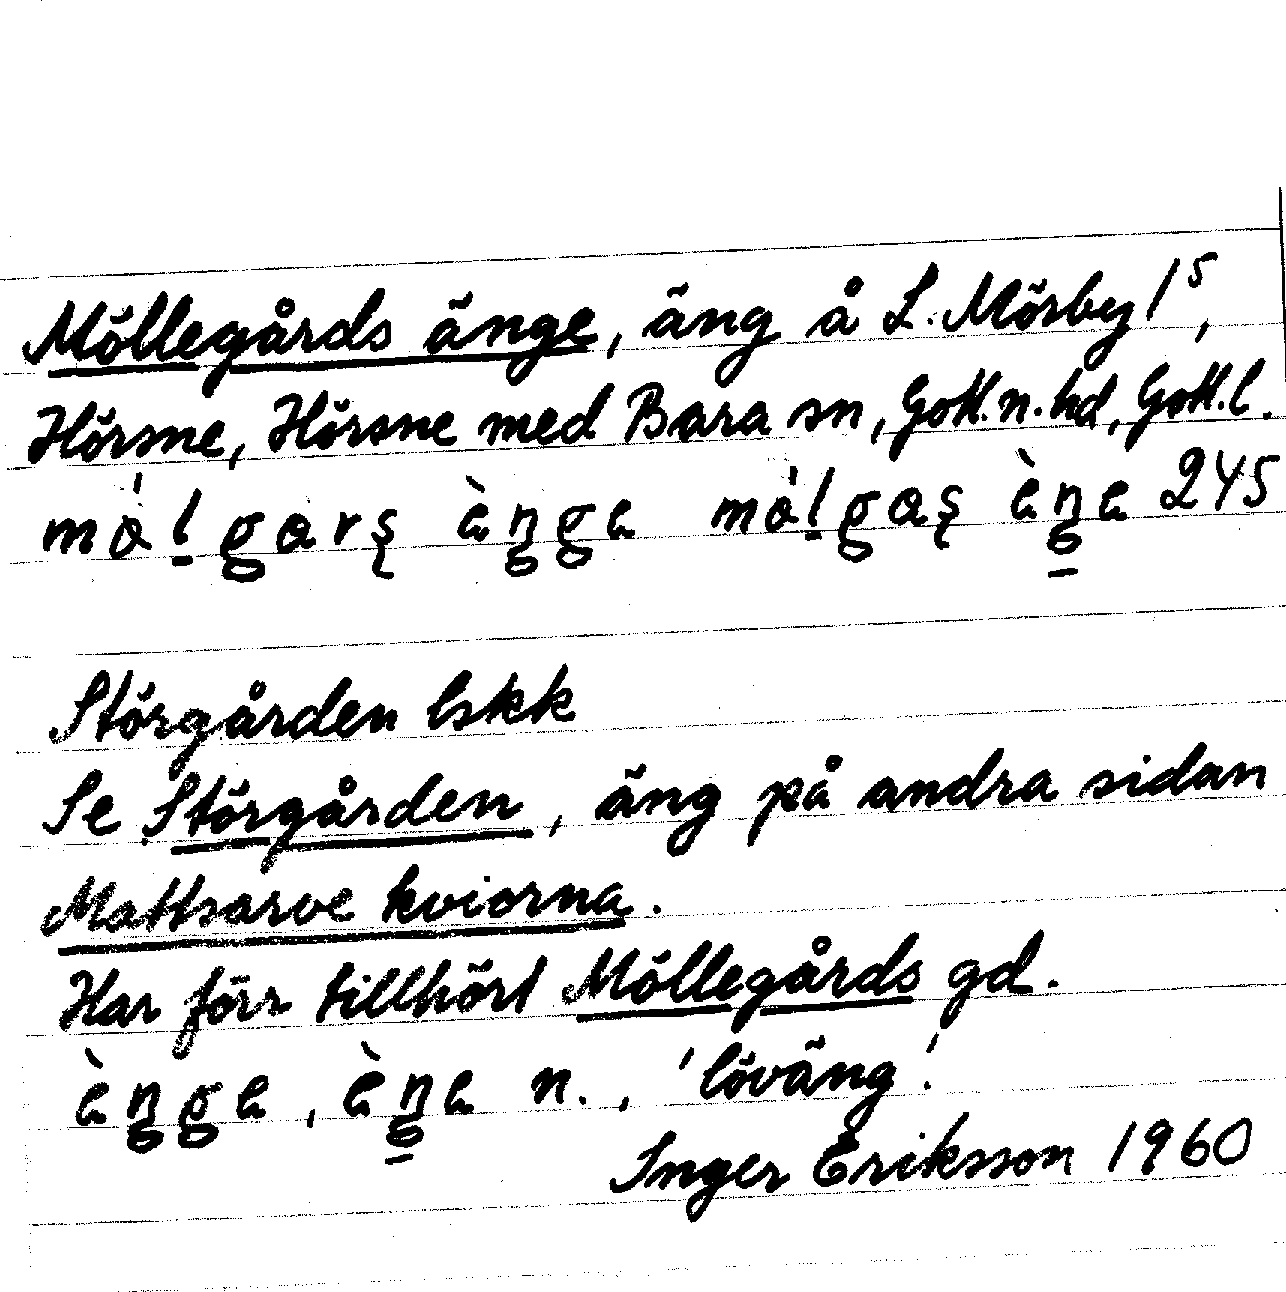 Möllegårds änge, äng å L. Mörby 1⁵,
Hörsne, Hörsne med Bara sn, Gotl. n. hd, Gotl. l.
245
Störgården lskk
Se Störgården, äng på andra sidan
Mattsarve kviorna.
Har förr tillhört Möllegårds gd.
n., 'löväng'.
Inger Eriksson 1960